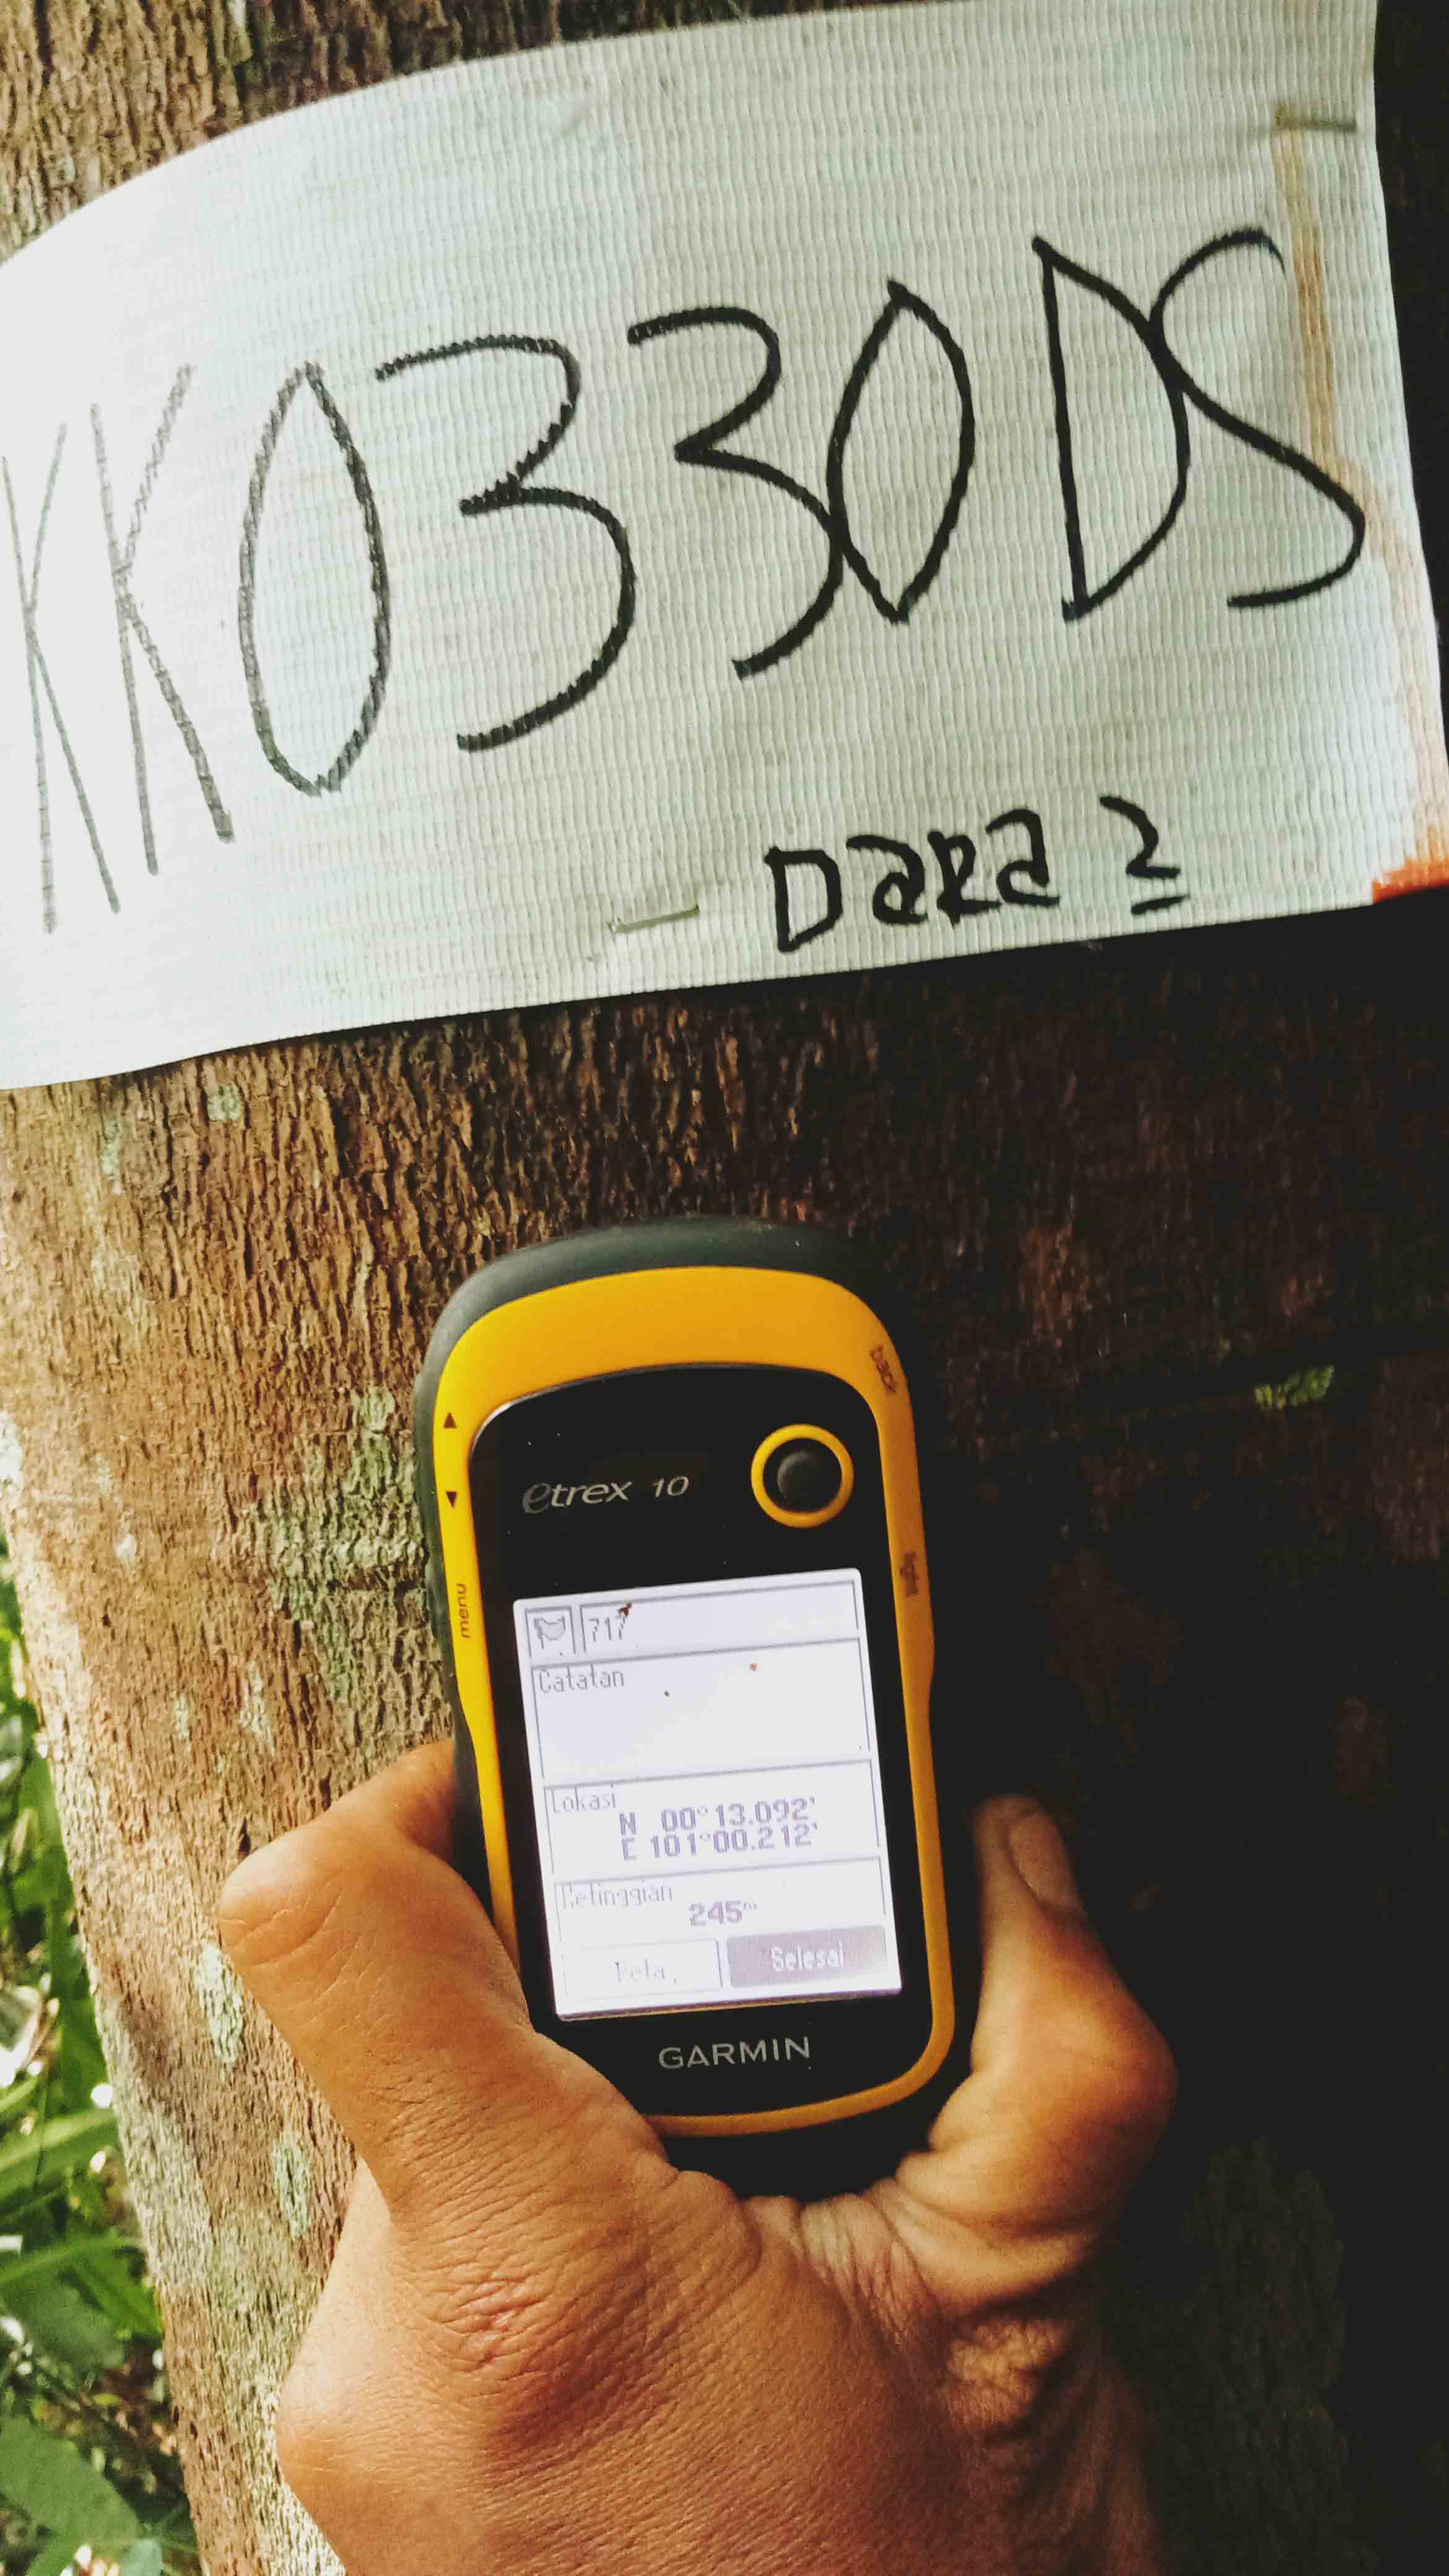 KK0330DS
Dara 2
back
etrex 10
light
menu
717
Catatan
Lokasi
N 00°13.092'
E 101°00.212'
Ketinggian
245m
Peta
Selesai
GARMIN